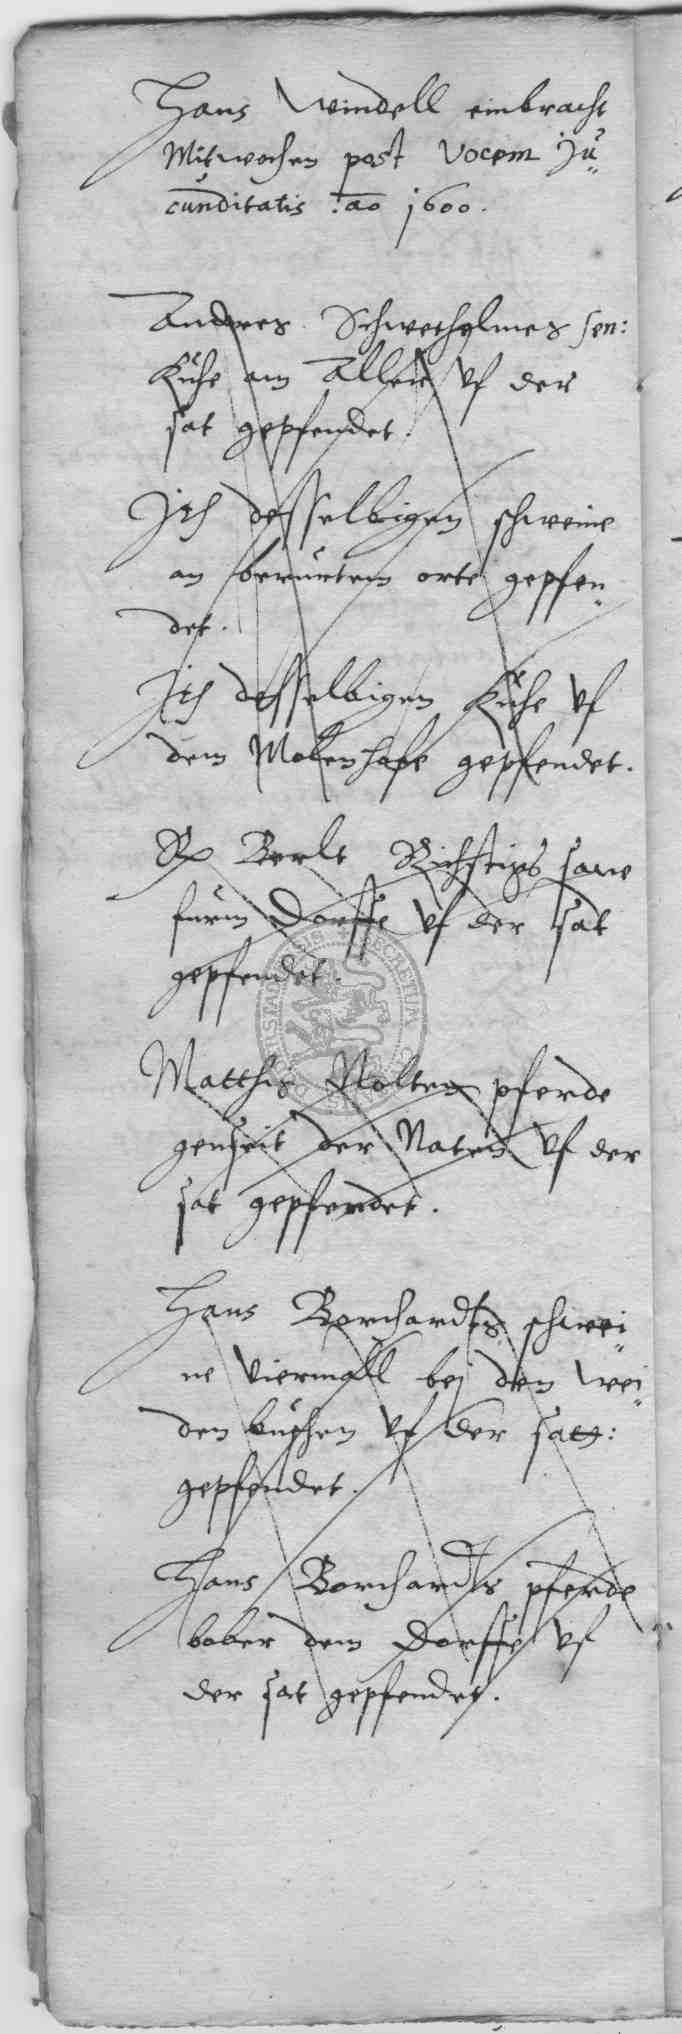 Hans Windell einbracht
Mitwochen post Vocem Ju„
cunditatis : ao 1600.
Andres Schwethelmes sen:
Kühe am Aller vf der
sat gepfendet.
Ite desselbigen schweine
an berurtem orte gepfen„
det.
Ite desselbigen Kühe vf
dem Molenhofe gepfendet.
Berlt Richstigs sawe
furm Dorffe vf der sat
gepfendet.
Matthis Nolten pferde
genseit der Naten vf der
sat gepfendet.
Hans Borchardes schwei„
ne viermall bej den wei„
den buschen vf der satt:
gepfendet.
Hans Borchardts pferde
bober dem Dorffe vf
der sat gepfendet.